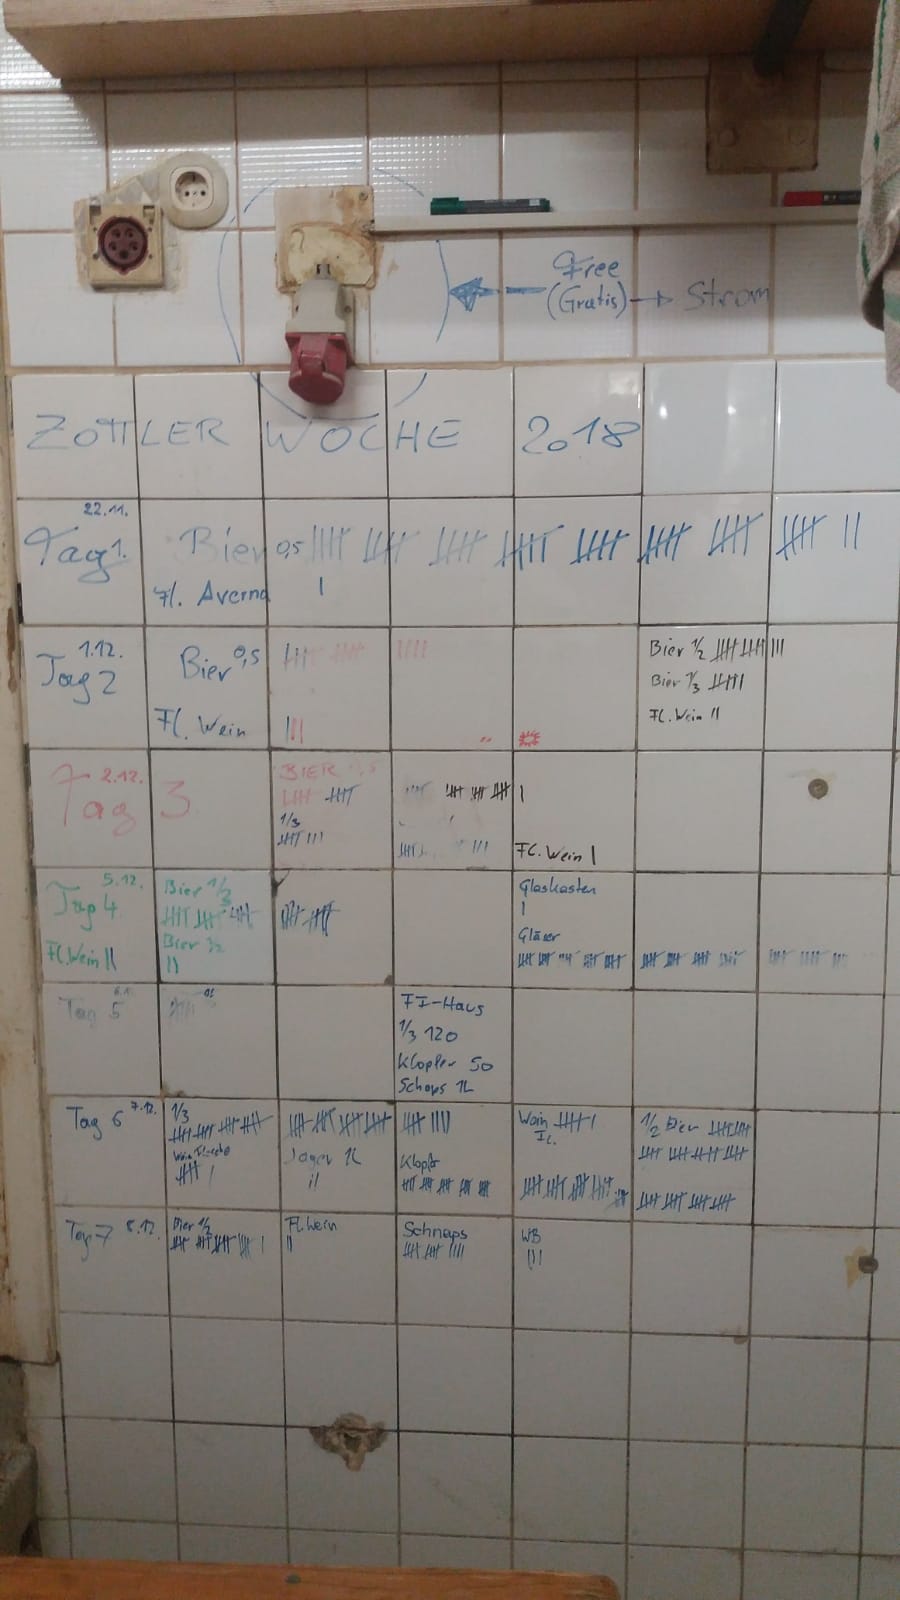 Free
(Gratis) → Strom
ZOTTLER WOCHE 2018
22.11.
Tag 1. Bier 0,5
Fl. Averna
1.12.
Tag 2 Bier 0,5
Fl. Wein
Bier 1/2
Bier 1/3
Fl. Wein
2.12.
Tag 3
BIER
1/3
Fl. Wein
5.12.
Tag 4
Fl. Wein
Bier 1/3
Bier 1/2
Glaskasten
Gläser
Tag 5
FF-Haus
1/3 120
Klopfer 50
Schaps 1L
Tag 6 7.12.
1/3
Wein Flasche
Jager 1L
Klopfer
Wein
1/2 Bier
Tag 7 8.12.
Bier 1/2
Fl. Wein
Schnaps
WB